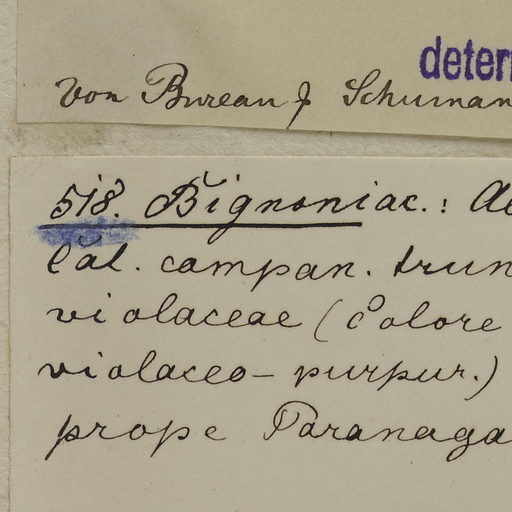 deter
von Bureau & Schuman
518. Bignoniac.: Ad
Cal. campan. trun
violaceae (Colore
violaceo-purpur.)
prope Paranaga